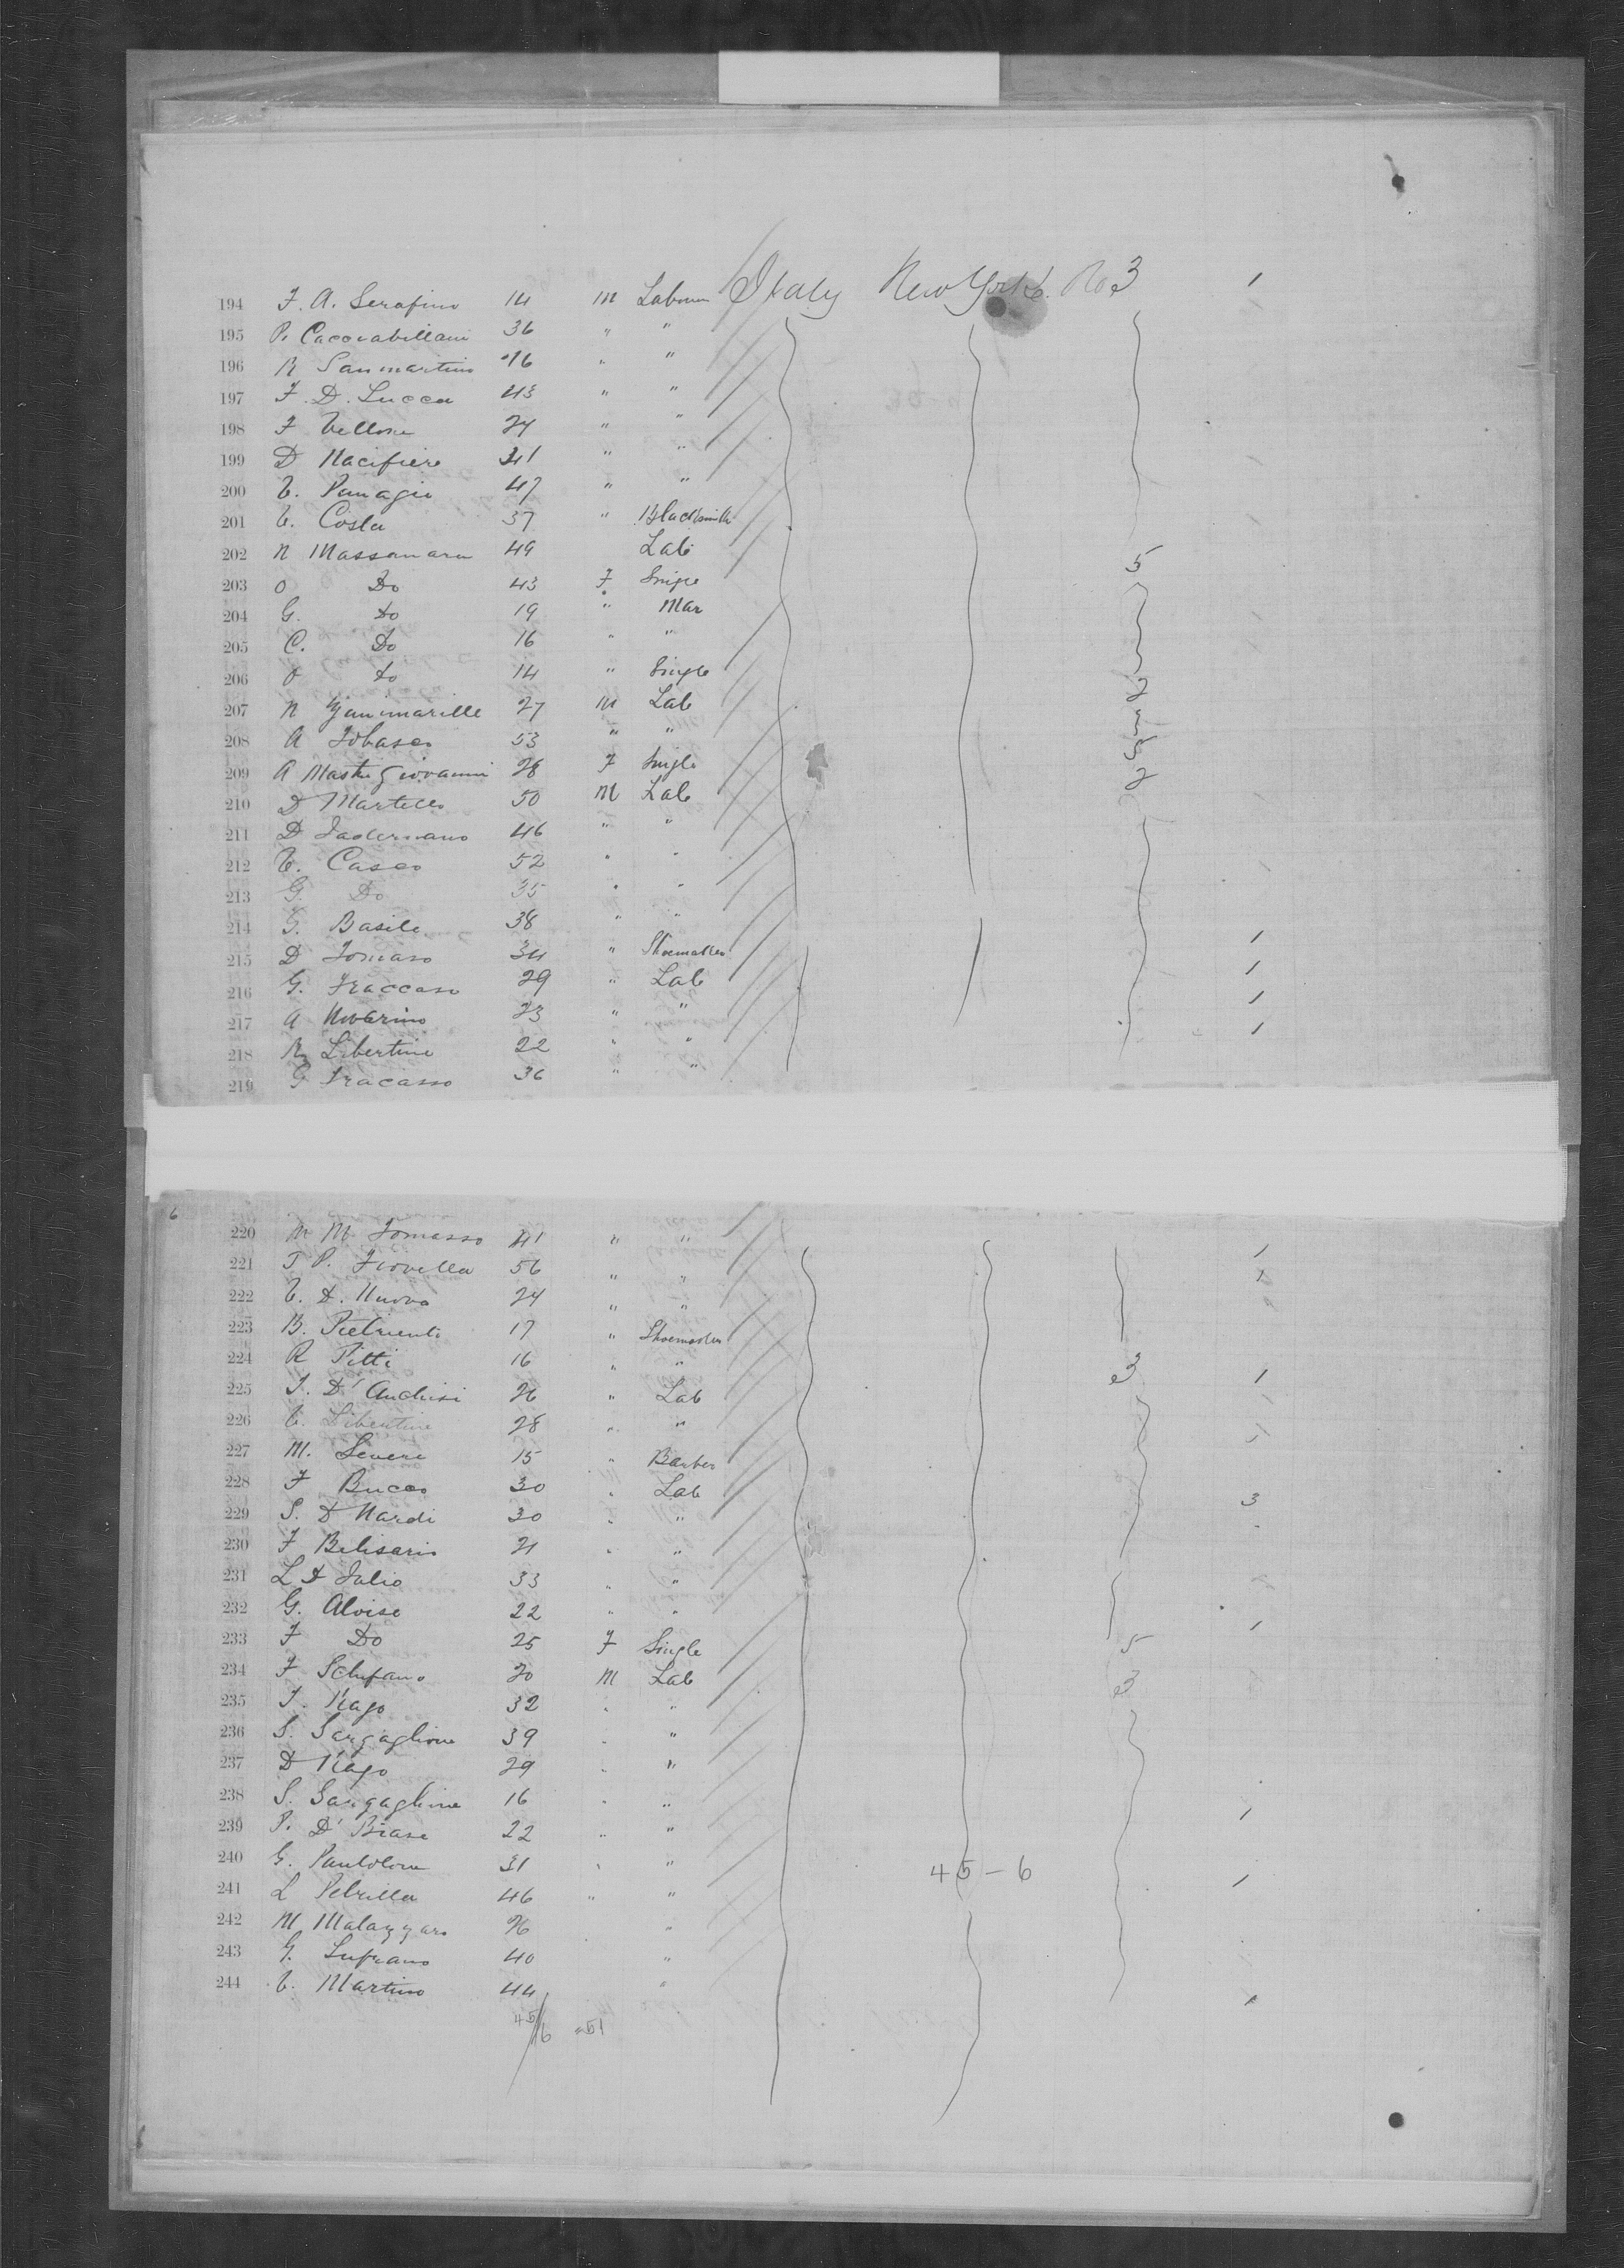 194 F. A. Serafino 14 M Labourer Italy New York No 3 1
195 P. Caccavabillani 36 " "
196 R Sanmartino 16 " "
197 F. D. Lucca 43 " "
198 F Vellone 24 " "
199 D Nacifiero 41 " "
200 V. Panagio 47 " "
201 V. Costa 37 " Blacksmith
202 N Massamara 49 Lab
203 O Do 43 F Single 5
204 G. Do 19 " Mar
205 C. Do 16 " "
206 O Do 14 " Single
207 N 27 M Lab
208 A Tobasco 53 " "
209 A Mastrigiovanni 28 F Single
210 D Martello 50 M Lab
211 D 46 " "
212 V. Casco 52 " "
213 G. Do 35 " "
214 G. Basile 38 " "
215 D Tomaso 34 " Shoemaker 1
216 G. Fraccaso 29 " Lab 1
217 A Novarino 23 " " 1
218 N Libertine 22 " " 1
219 G Fracasso 36 " "
6
220 N M Tomasso 41 " " 1
221 T P. Fiovella 56 " " 1
222 V. D. Nuovo 24 " "
223 B. 17 " Shoemaker
224 R Pitti 16 " " 3
225 T. D' Anchisi 26 " Lab 1
226 V. Libertine 28 " "
227 M. Severe 15 " Barber
228 F Bucco 30 " Lab
229 S. D Nardi 30 " " 3
230 F Belisario 21 " "
231 L D Julio 33 " "
232 G. Aloise 22 " "
233 F Do 25 F Single 5 1
234 F Schifano 20 M Lab 3
235 T. Rago 32 " "
236 S. Sangaglione 39 " "
237 D Rago 29 " "
238 S. Sangaglione 16 " "
239 P. D' Biase 22 " " 1
240 G. Pantolone 31 " " 45-6
241 L Petrilla 46 " " 1
242 M Malazzaro 26 "
243 G. Sufrano 40 "
244 V. Martino 44 "
45/6 = 51